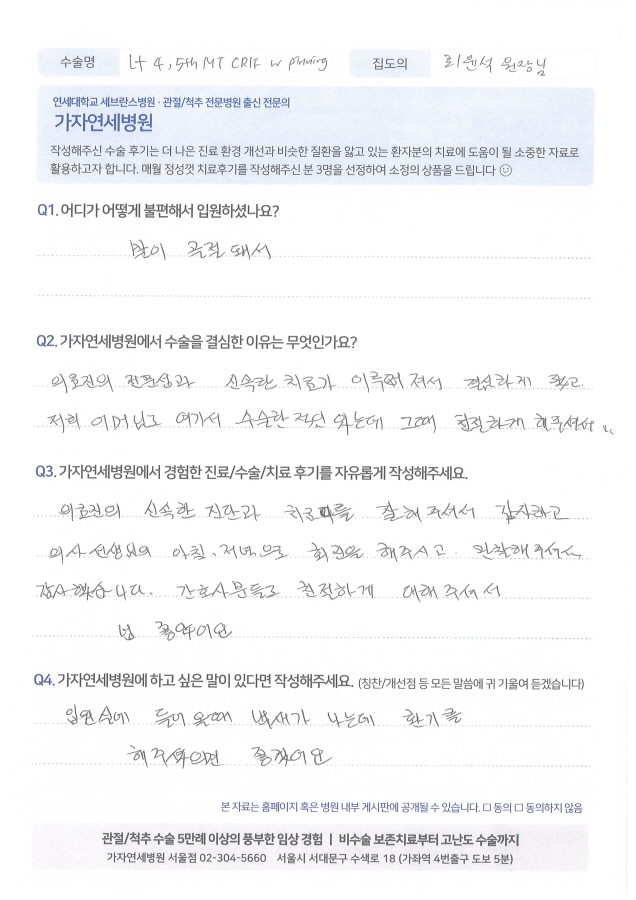 수술명 Lt 4, 5th MT CRIF w pinning 집도의 최윤석 원장님
연세대학교 세브란스병원 · 관절/척추 전문병원 출신 전문의
가자연세병원
작성해주신 수술 후기는 더 나은 진료 환경 개선과 비슷한 질환을 앓고 있는 환자분의 치료에 도움이 될 소중한 자료로
활용하고자 합니다. 매월 정성껏 치료후기를 작성해주신 분 3명을 선정하여 소정의 상품을 드립니다 ☺
Q1. 어디가 어떻게 불편해서 입원하셨나요?
발이 골절 돼서
Q2. 가자연세병원에서 수술을 결심한 이유는 무엇인가요?
의료진의 전문성과 신속한 치료가 이루어져서 결심하게 됐고
저희 어머님도 여기서 수술한 적이 있는데 그때 친절하게 해주셔서
Q3. 가자연세병원에서 경험한 진료/수술/치료 후기를 자유롭게 작성해주세요.
의료진의 신속한 진단과 치료를 잘해주셔서 감사하고
의사선생님의 아침, 저녁으로 회진을 해주시고
감사했습니다. 간호사분들도 친절하게 대해주셔서
넘 좋았어요
Q4. 가자연세병원에 하고 싶은 말이 있다면 작성해주세요. (칭찬/개선점 등 모든 말씀에 귀 기울여 듣겠습니다)
입원실에 들어 왔때 냄새가 나는데 환기를
해주셨으면 좋겠어요
본 자료는 홈페이지 혹은 병원 내부 게시판에 공개될 수 있습니다. □ 동의 □ 동의하지 않음
관절/척추 수술 5만례 이상의 풍부한 임상 경험 | 비수술 보존치료부터 고난도 수술까지
가자연세병원 서울점 02-304-5660 서울시 서대문구 수색로 18 (가좌역 4번출구 도보 5분)